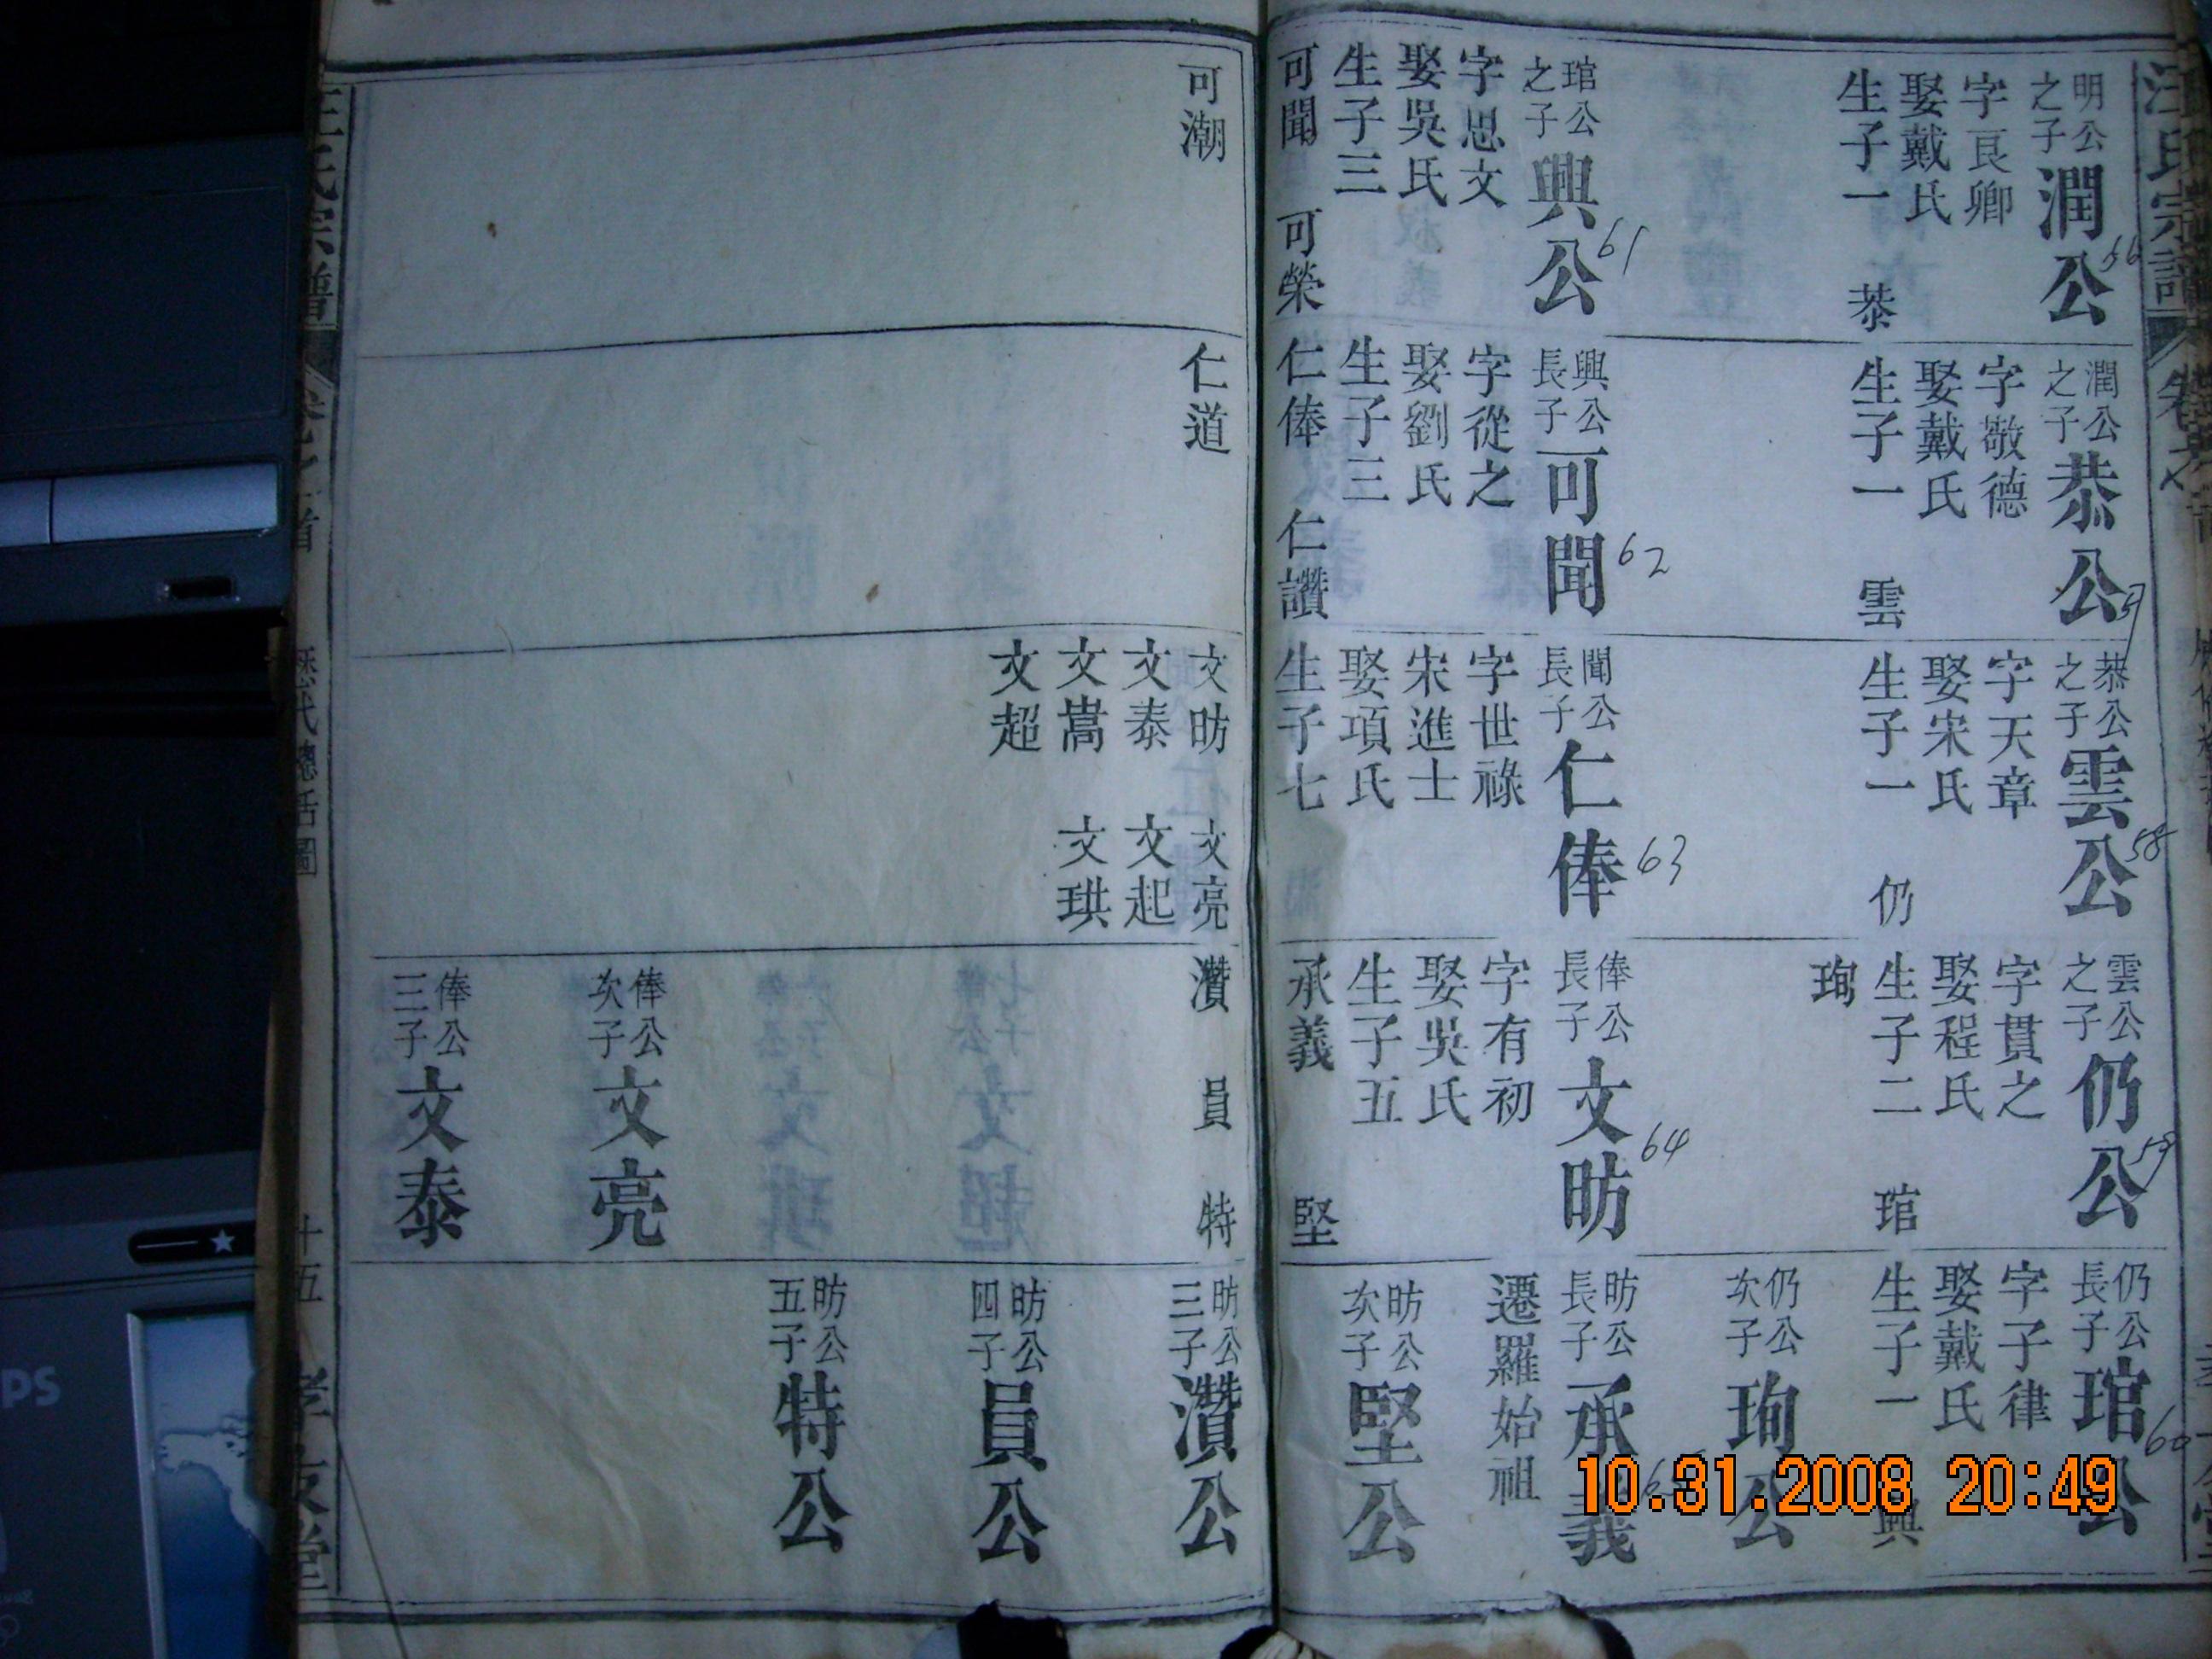 汪氏宗譜
明公之子
潤公
56
字艮卿
娶戴氏
生子一
恭
琯公之子
興公
61
字思文
娶吳氏
生子三
可聞 可榮
潤公之子
恭公
57
字敬德
娶戴氏
生子一
雲
興公長子
可聞
62
字從之
娶劉氏
生子三
仁俸 仁讚
恭公之子
雲公
58
字天章
娶宋氏
生子一
仍
聞公長子
仁俸
63
字世祿
宋進士
娶項氏
生子七
雲公之子
仍公
59
字貫之
娶程氏
生子二
琯
珣
俸公長子
文昉
64
字有初
娶吳氏
生子五
承義 堅
仍公長子
琯公
60
字子律
娶戴氏
生子一
興
仍公次子
珣公
昉公長子
承義
遷羅始祖
昉公次子
堅公
可潮
仁道
文昉 文亮
文泰 文起
文嵩 文珙
文超
瓚 員 特
俸公次子
文亮
俸公三子
文泰
昉公三子
瓚公
昉公四子
員公
昉公五子
特公
汪氏宗譜
歷代總括圖
十五
孝友堂
10.31.2008 20:49
PS